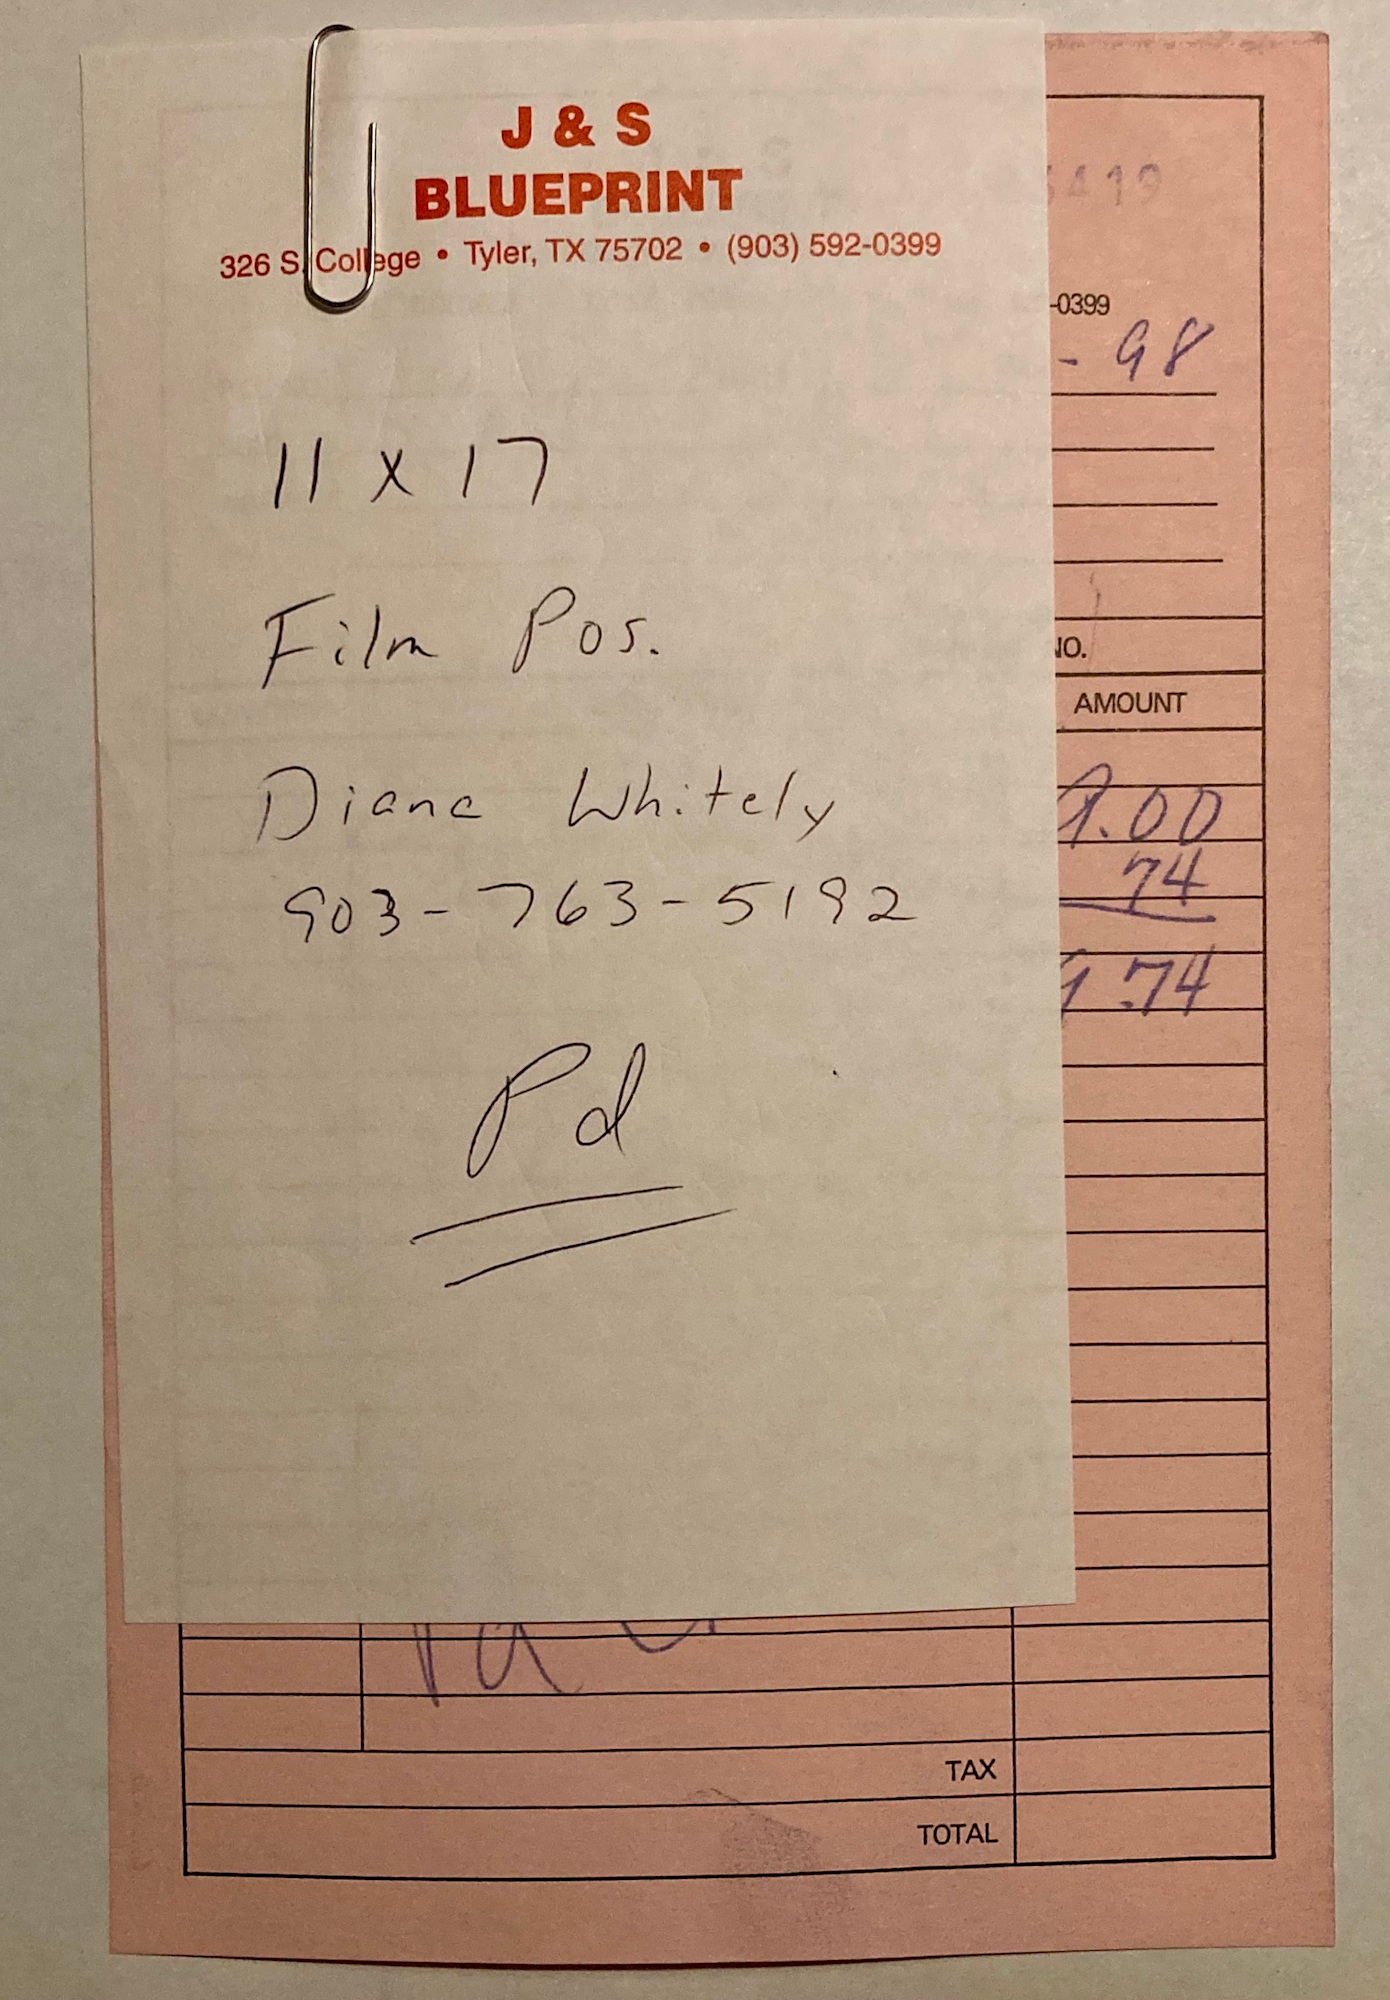 J & S
BLUEPRINT
326 S. College • Tyler, TX 75702 • (903) 592-0399
11 x 17
Film Pos.
Diane Whitely
903-763-5192
Pd
5419
-0399
- 98
NO.
AMOUNT
9.00
74
9.74
TAX
TOTAL